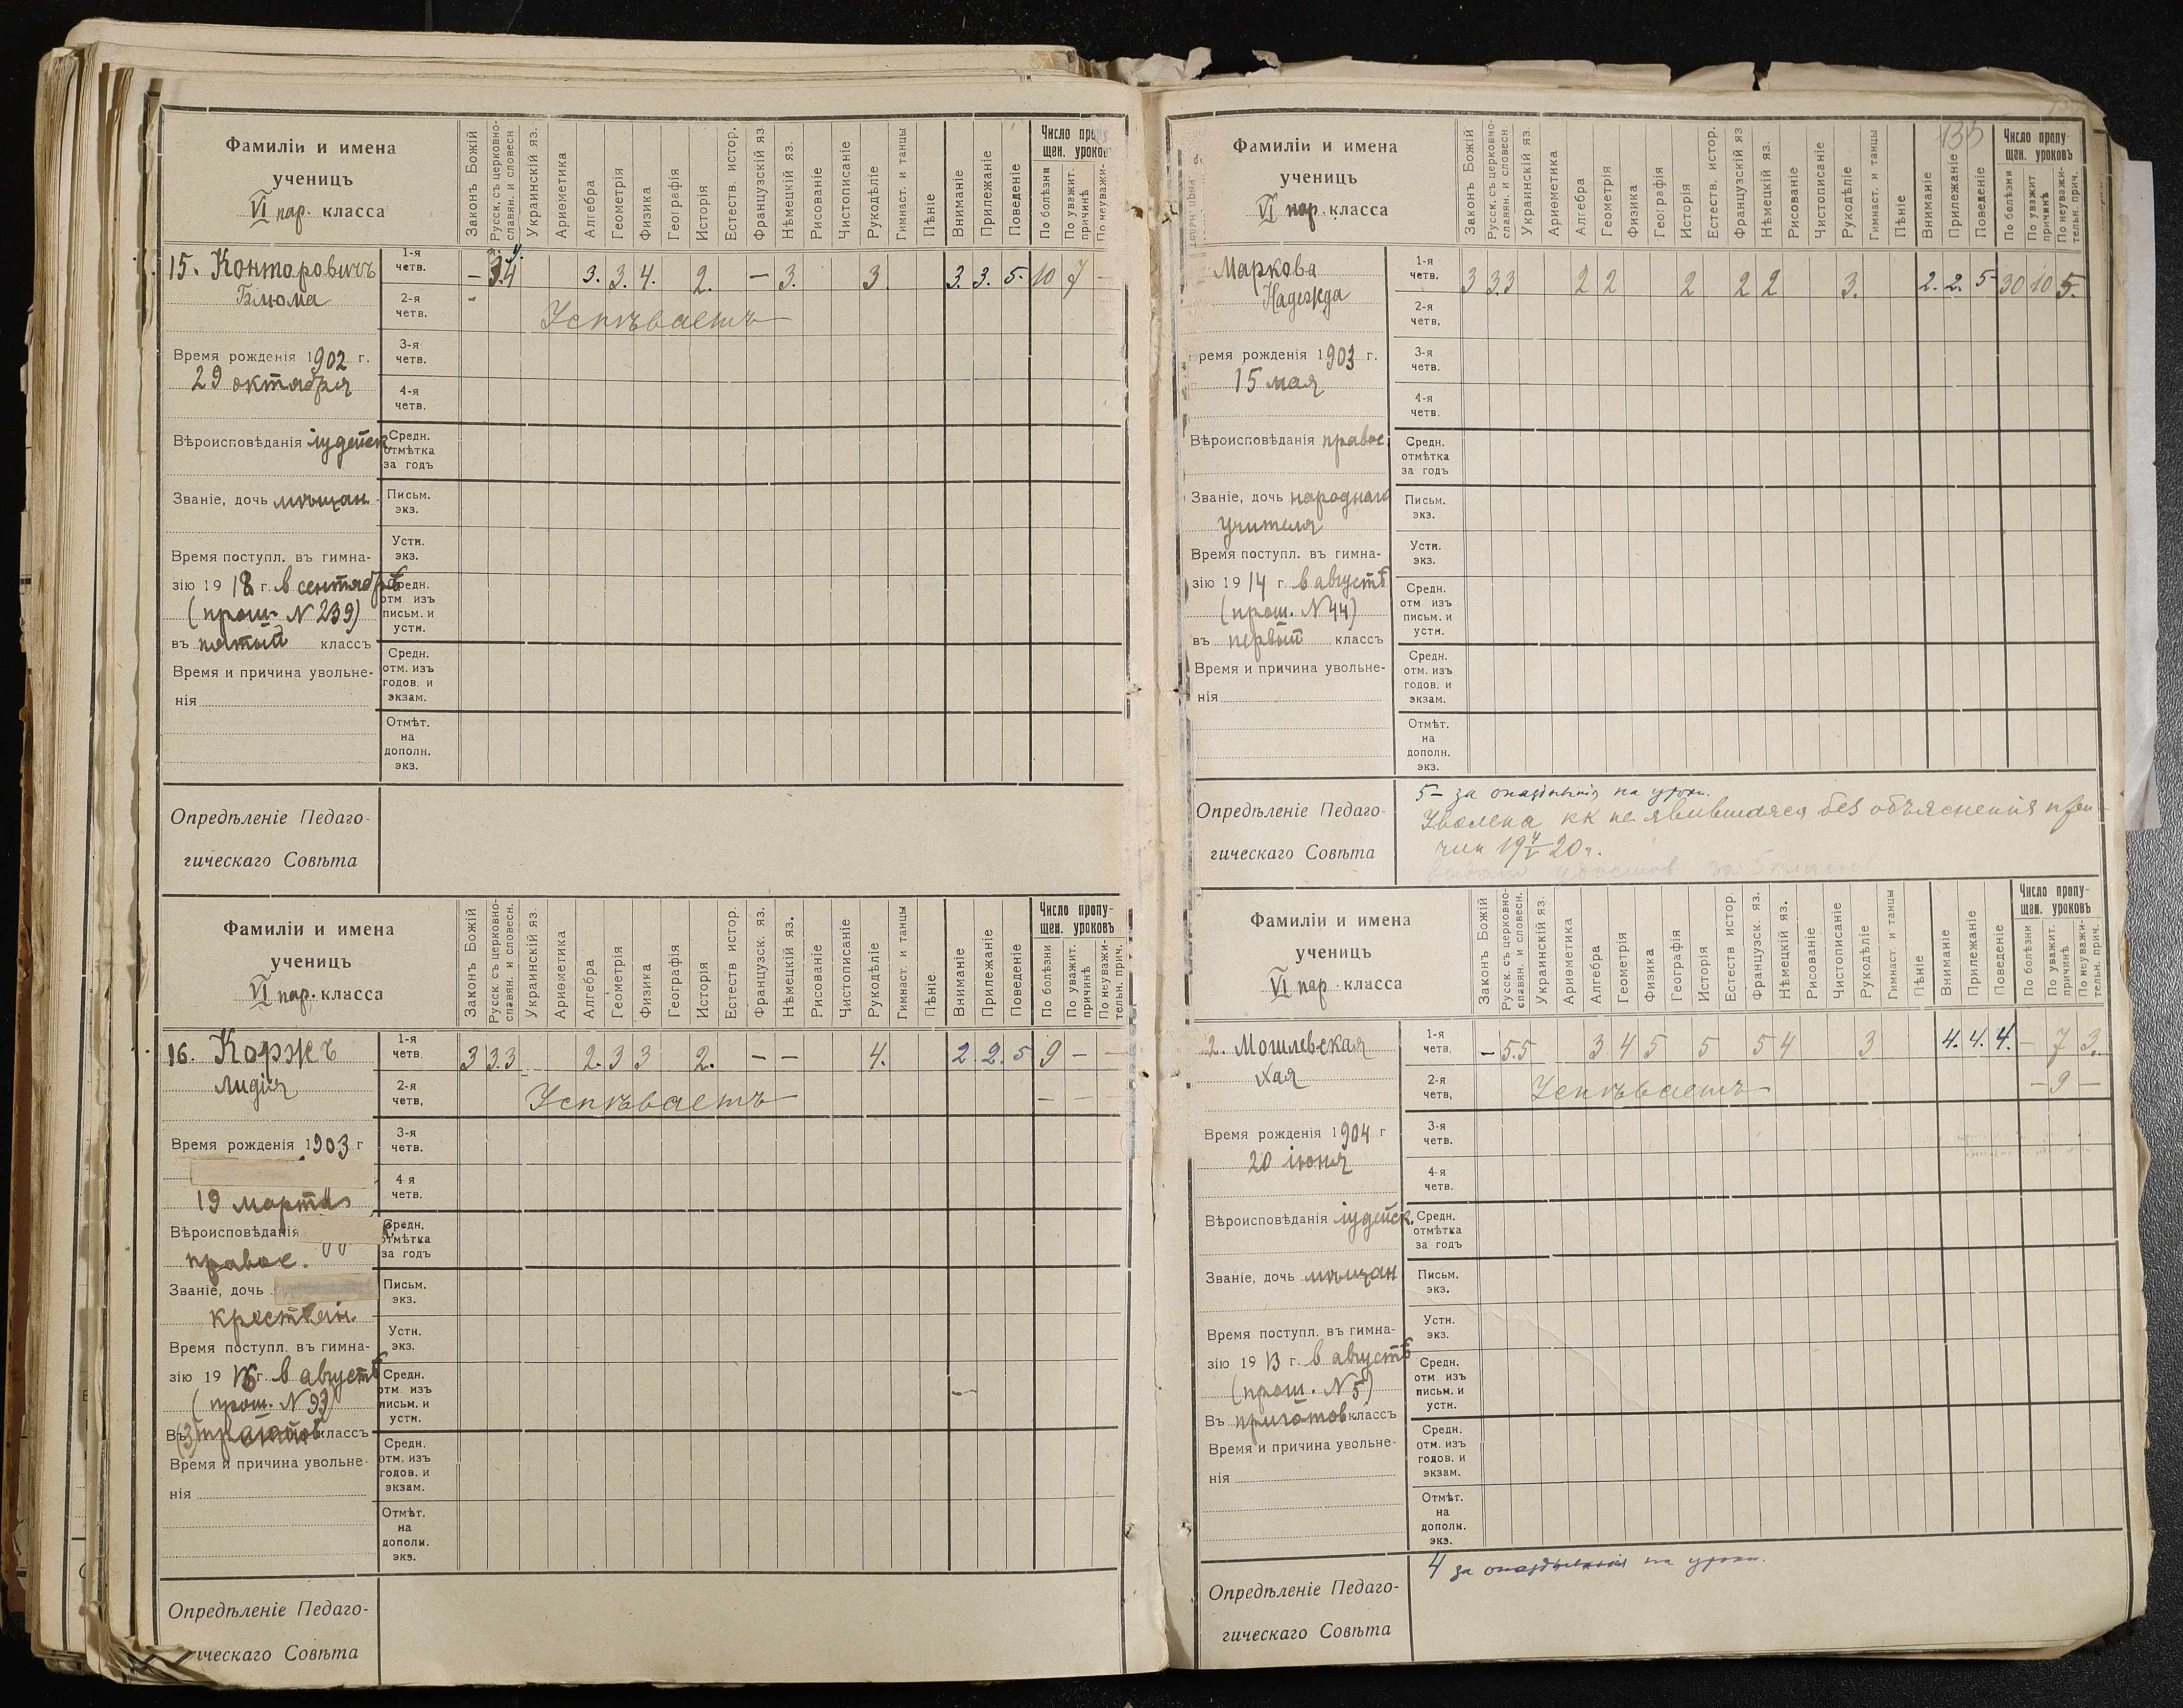 Фамиліи и имена
ученицъ
VI пар. класса
Законъ Божій
Русск. съ церковно-
славян. и словесн
Украинскій яз.
Ариѳметика
Алгебра
Геометрія
Физика
Географія
Исторія
Естеств. истор.
Французскій яз
Нѣмецкій яз.
Рисованіе
Чистописаніе
Рукодѣліе
Гимнаст. и танцы
Пѣніе
Вниманіе
Прилежаніе
Поведеніе
Число пропу
щен. уроков
По болѣзни
По уважит.
причинѣ
По неуважи-
15. Конторовичъ
Блюма
1-я
четв.
– 3.4 3. 3. 4. 2. – 3. 3 3. 3. 5. 10 7 –
2-я
четв.
Успѣваетъ
Время рожденія 1902 г.
29 октября
3-я
четв.
4-я
четв.
Вѣроисповѣданія іудейск
Средн.
отмѣтка
за годъ
Званіе, дочь мѣщан.
Письм.
экз.
Время поступл. въ гимна-
зію 1918 г. в сентябрѣ
(прош. N 239)
въ пятый классъ
Устн.
экз.
Средн.
отм изъ
письм. и
устн.
Время и причина увольне-
нія
Средн.
отм. изъ
годов. и
экзам.
Отмѣт.
на
дополн.
экз.
Опредѣленіе Педаго-
гическаго Совѣта
Фамиліи и имена
ученицъ
VI пар. класса
Законъ Божій
Русск. съ церковно-
славян. и словесн.
Украинскій яз.
Ариѳметика
Алгебра
Геометрія
Физика
Географія
Исторія
Естеств истор.
Французск. яз.
Нѣмецкій яз.
Рисованіе
Чистописаніе
Рукодѣліе
Гимнаст. и танцы
Пѣніе
Вниманіе
Прилежаніе
Поведеніе
Число пропу-
щен. уроковъ
По болѣзни
По уважит.
причинѣ
По неуважи-
тельн. прич.
16. Коржъ
Лидія
1-я
четв.
3 3.3 2. 3 3 2. – – 4. 2. 2. 5 9 – –
2-я
четв,
Успѣваетъ – –
Время рожденія 1903 г
19 марта
3-я
четв.
4 я
четв.
Вѣроисповѣданія
правос.
Средн.
отмѣтка
за годъ
Званіе, дочь
крестьян.
Письм.
экз.
Время поступл. въ гимна-
зію 1916 г. в августѣ
(прош. N 93)
Въ (3) классъ
Устн.
экз.
Средн.
отм изъ
письм. и
устн.
Время и причина увольне-
нія
Средн.
отм. изъ
годов. и
экзам.
Отмѣт.
на
дополн.
экз.
Опредѣленіе Педаго-
ическаго Совѣта
133
Фамиліи и имена
ученицъ
VI пар. класса
Законъ Божій
Русск. съ церковно-
славян. и словесн.
Украинскій яз.
Ариѳметика
Алгебра
Геометрія
Физика
Географія
Исторія
Естеств. истор.
Французскій яз
Нѣмецкій яз.
Рисованіе
Чистописаніе
Рукодѣліе
Гимнаст. и танцы
Пѣніе
Вниманіе
Прилежаніе
Поведеніе
Число пропу-
щен. уроковъ
По болѣзни
По уважит
причинѣ
По неуважи-
тельн. прич.
Маркова
Надежда
1-я
четв.
3 3.3 2 2 2 2 2 3. 2. 2. 5– 30 10 5.
2-я
четв,
ремя рожденія 1903 г.
15 мая
3-я
четв.
4-я
четв.
Вѣроисповѣданія правос
Средн.
отмѣтка
за годъ
Званіе, дочь народнаго
учителя
Письм.
экз.
Время поступл. въ гимна-
зію 1914 г в августѣ
(прош. N 44)
въ первый классъ
Устн.
экз.
Средн.
отм изъ
письм. и
устн.
Время и причина увольне-
нія
Средн.
отм. изъ
годов. и
экзам.
Отмѣт.
на
дополн.
экз.
Опредѣленіе Педаго-
гическаго Совѣта
5– за опазд​ыванія на уроки.
Уволена кк не явившаяся без объясненія при-
чин 19 4/V 20 г.
Фамиліи и имена
ученицъ
VI пар. класса
Законъ Божій
Русск. съ церковно-
славян. и словесн.
Украинскій яз.
Ариѳметика
Алгебра
Геометрія
Физика
Географія
Исторія
Естеств истор.
Французск. яз.
Нѣмецкій яз.
Рисованіе
Чистописаніе
Рукодѣліе
Гимнаст. и танцы
Пѣніе
Вниманіе
Прилежаніе
Поведеніе
Число пропу-
щен. уроковъ
По болѣзни
По уважит.
причинѣ
По неуважи-
тельн. прич.
2. Могилевская
Хая
1-я
четв,
– 5.5 3 4 5 5 5 4 3 4. 4. 4. – 7 3.
2-я
четв,
Успѣваетъ – 9 –
Время рожденія 1904 г
20 іюня
3-я
четв.
4-я
четв.
Вѣроисповѣданія іудейск.
Средн.
отмѣтка
за годъ
Званіе, дочь мѣщан
Письм.
экз.
Время поступл. въ гимна-
зію 1913 г. в августѣ
(прош. N 5)
Въ приготов классъ
Устн.
экз.
Средн.
отм изъ
письм. и
устн.
Время и причина увольне-
нія
Средн.
отм. изъ
годов. и
экзам.
Отмѣт.
на
дополн.
экз.
Опредѣленіе Педаго-
гическаго Совѣта
4 за опаздыванія на уроки.